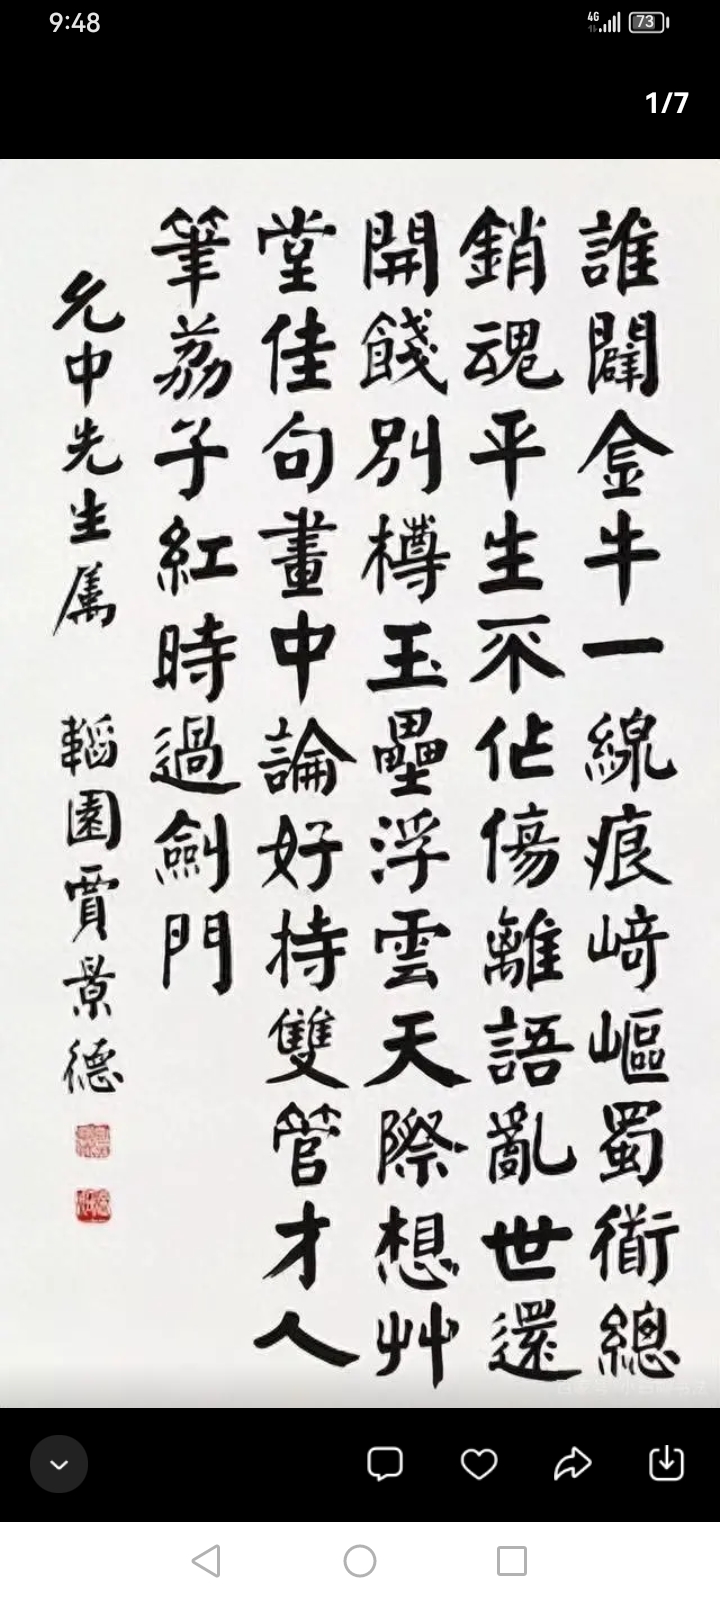 9:48
4G
73
1/7
誰闢金牛一線痕崎嶇蜀衜總
銷魂平生不佀傷離語亂世還
開餞別樽玉壘浮雲天際想艸
堂佳句畫中論好持雙管才人
筆荔子紅時過劍門
允中先生属
韜園賈景德